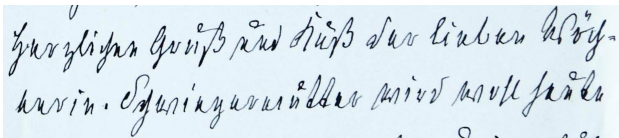 Herzlichen Gruß und Kuß der lieben Wöch-
nerin. Schwiegermutter wird wohl heute